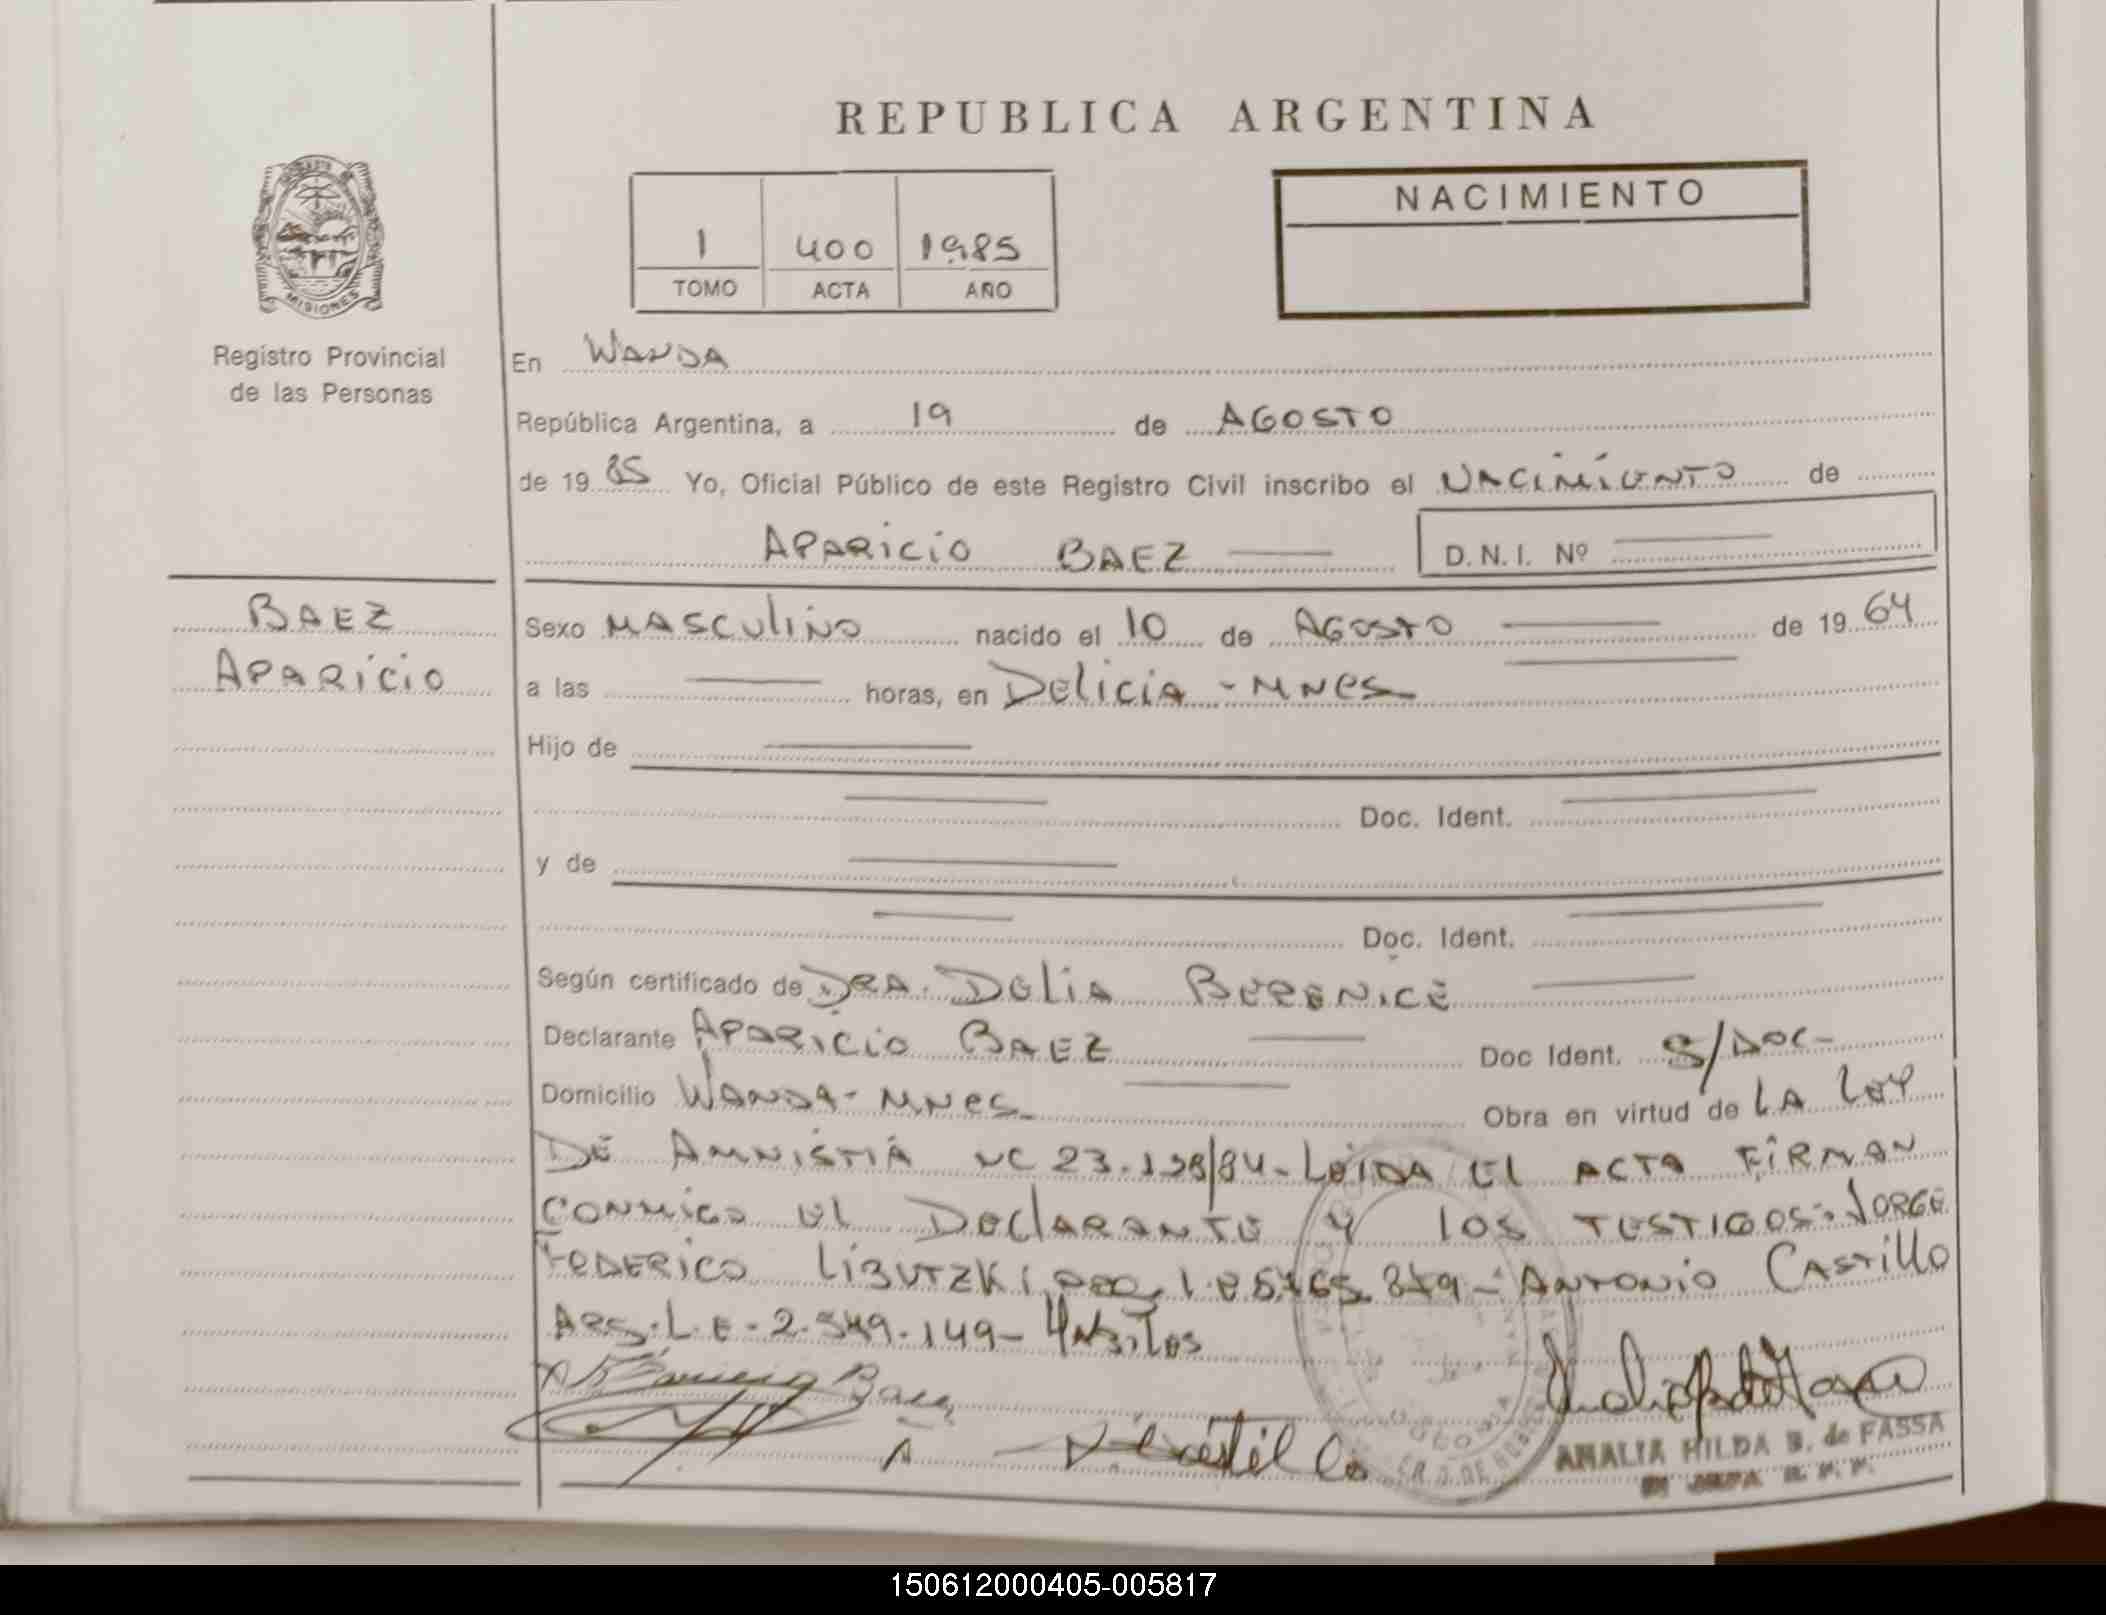 REPUBLICA ARGENTINA
1 400 1985
TOMO ACTA AÑO
NACIMIENTO
MISIONES
Registro Provincial
de las Personas
En WANDA
República Argentina, a 19 de AGOSTO
de 19 85 Yo, Oficial Público de este Registro Civil inscribo el NACIMIENTO de
APARICIO BAEZ D.N.I. Nº
BAEZ
APARICIO
Sexo MASCULINO nacido el 10 de AGOSTO de 19 64
a las horas, en DELICIA - MNES
Hijo de
Doc. Ident.
y de
Doc. Ident.
Según certificado de DRA. DELIA BERENICE
Declarante APARICIO BAEZ Doc Ident. S/DOC-
Domicilio WANDA - MNES Obra en virtud de LA LEY
DE AMNISTIA Nº 23.128/84 - LEIDA EL ACTA FIRMAN
CONMIGO EL DECLARANTE Y LOS TESTIGOS: JORGE
FEDERICO ANTONIO CASTILLO
ARG. L.E. 2.549.149 - HABILES
Baez
A Castillo
AMALIA HILDA B. de FASSA
150612000405-005817